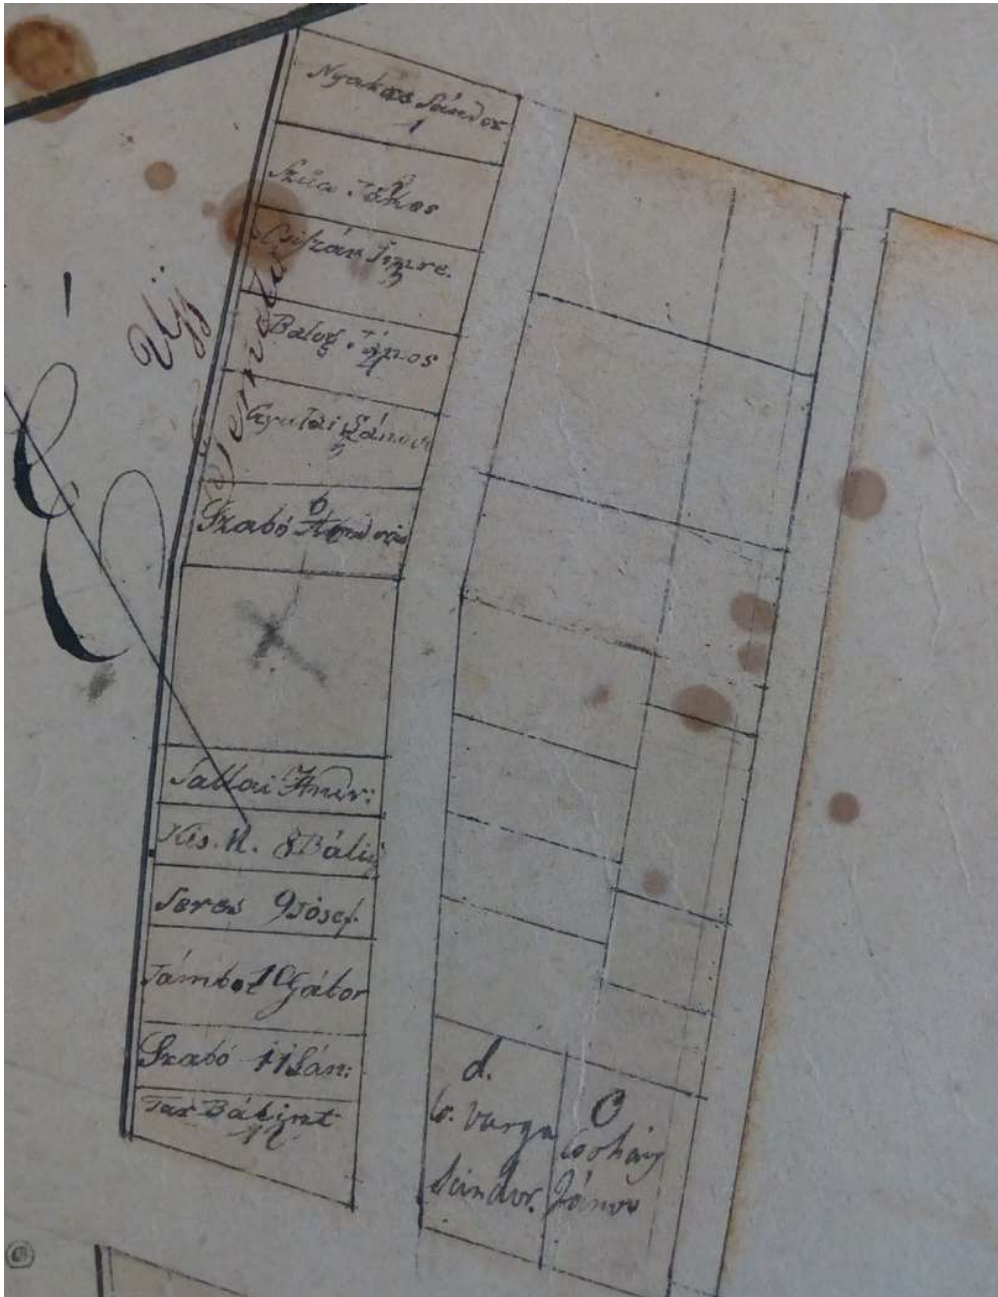 Nyakas Sándor
1
Szűcs János
2
Csiszár Imre.
3
Balog János
4
Gyulai Sándor
5
6
Szabó András
Ujj
Tallai Andr:
Kis. M. 8 Bálin
Seres 9 Jósef
Jámbor 10 Gábor
Szabó 11 Sán:
Tar Bálint
12
d.
G. Varga
Sándor.
C
Csohány
János